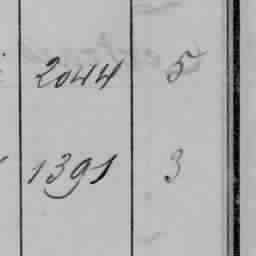 2044 5
1391 3